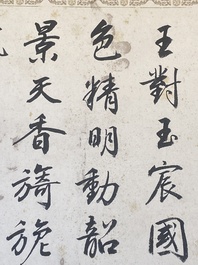 王對玉宸國
色精明動韶
景天香旖旎